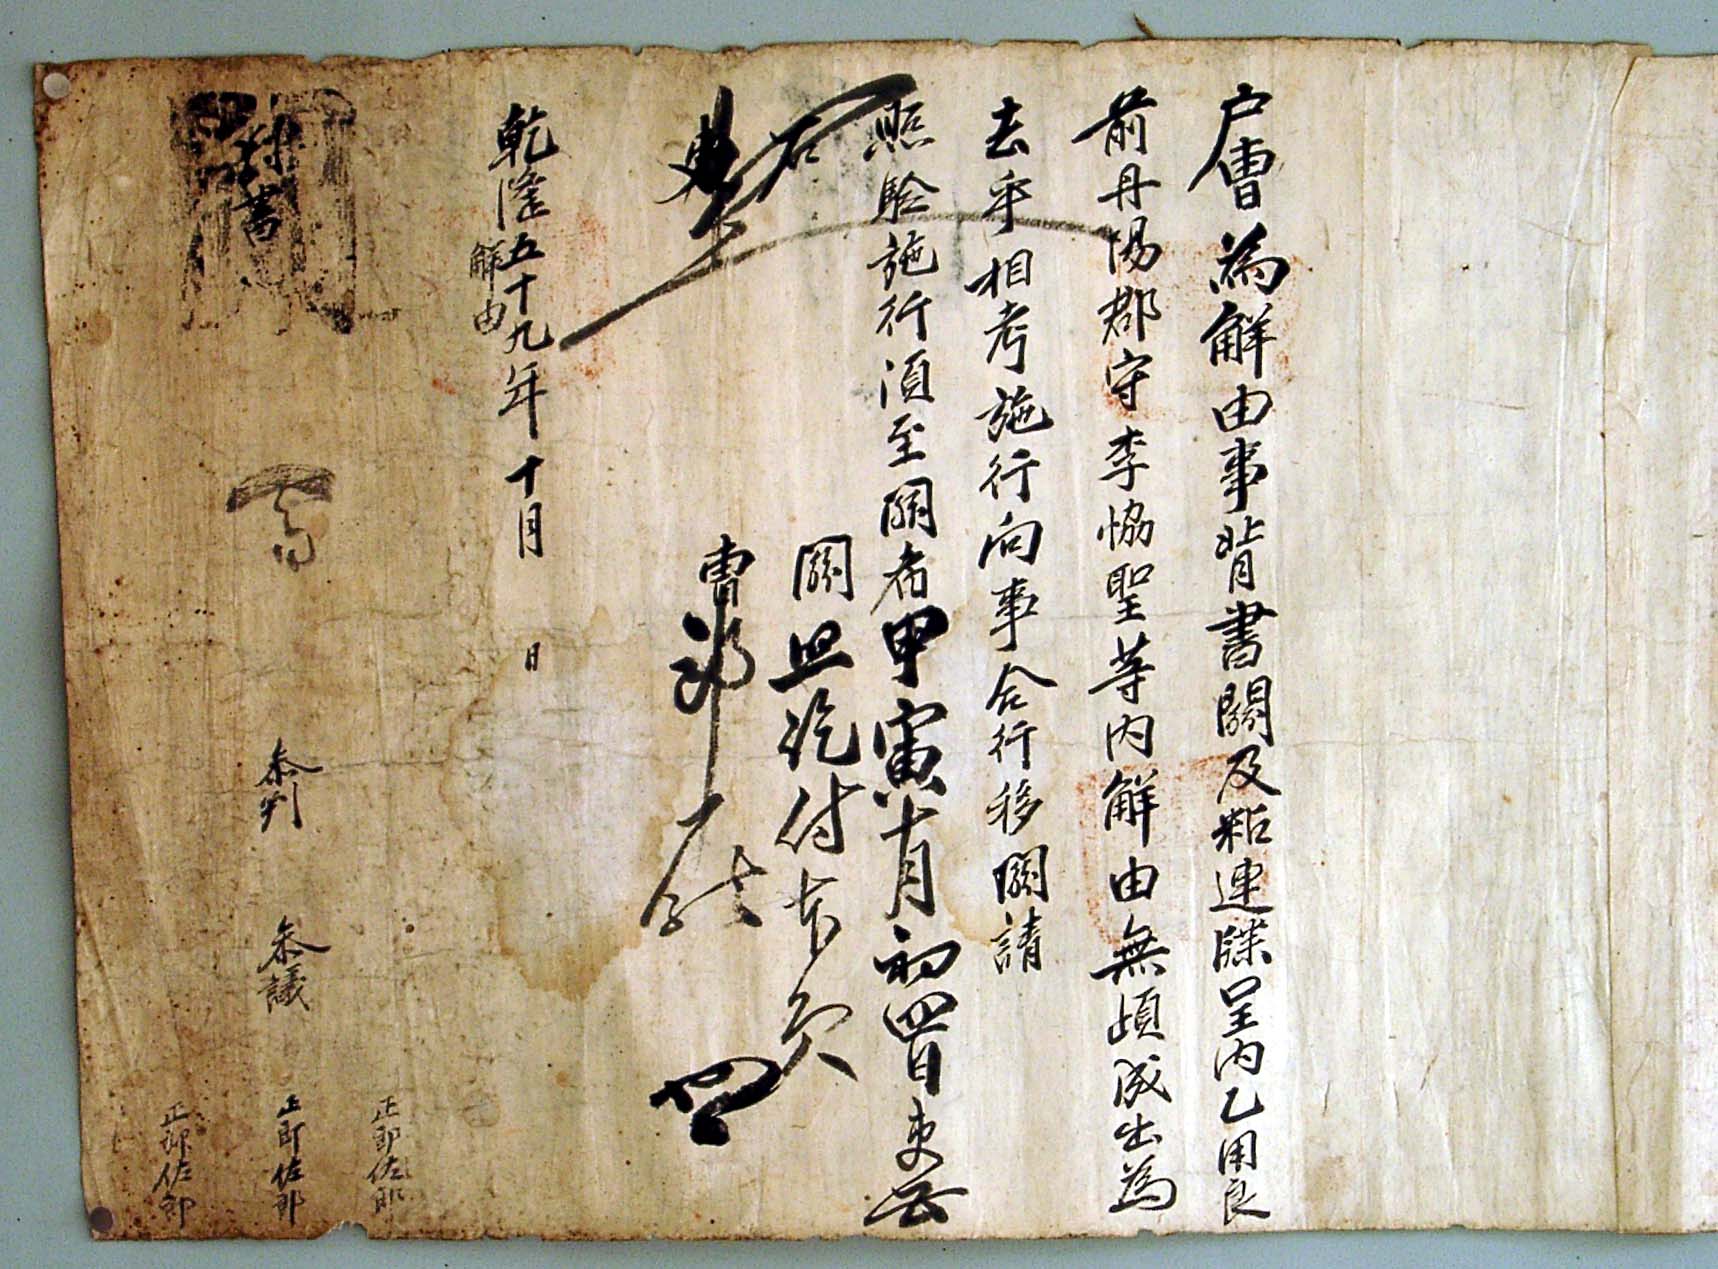 戶曺為解由事背書關及粘連牒呈內乙用良
前丹陽郡守李恊聖等內解由無頉成出為
去乎相考施行向事合行移關請
照驗施行須至關者甲寅十月初四日吏云
右
關
吏曺
乾隆五十九年十月 日
解由
判書
叅判
叅議
正郎佐郎
正郎佐郎
正郎佐郎